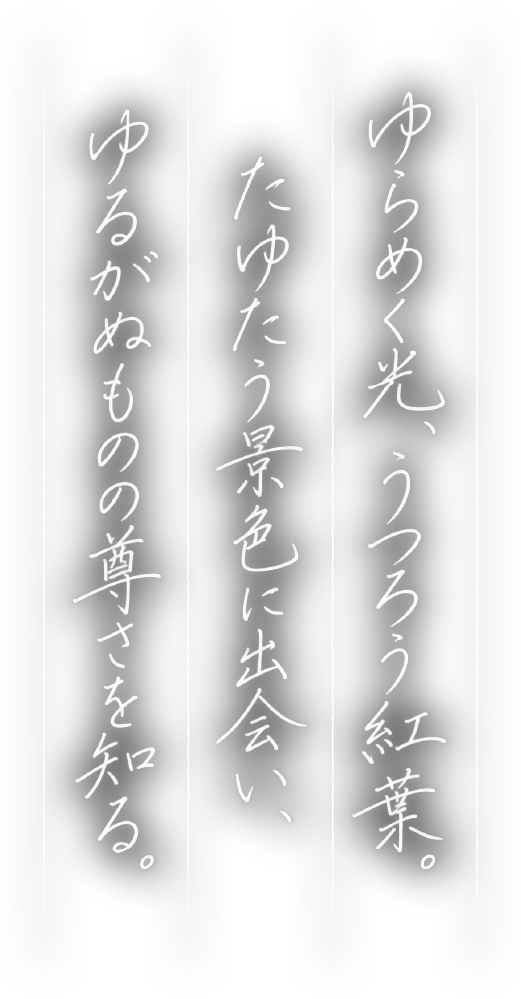 ゆらめく光、うつろう紅葉。
たゆたう景色に出会い、
ゆるがぬものの尊さを知る。